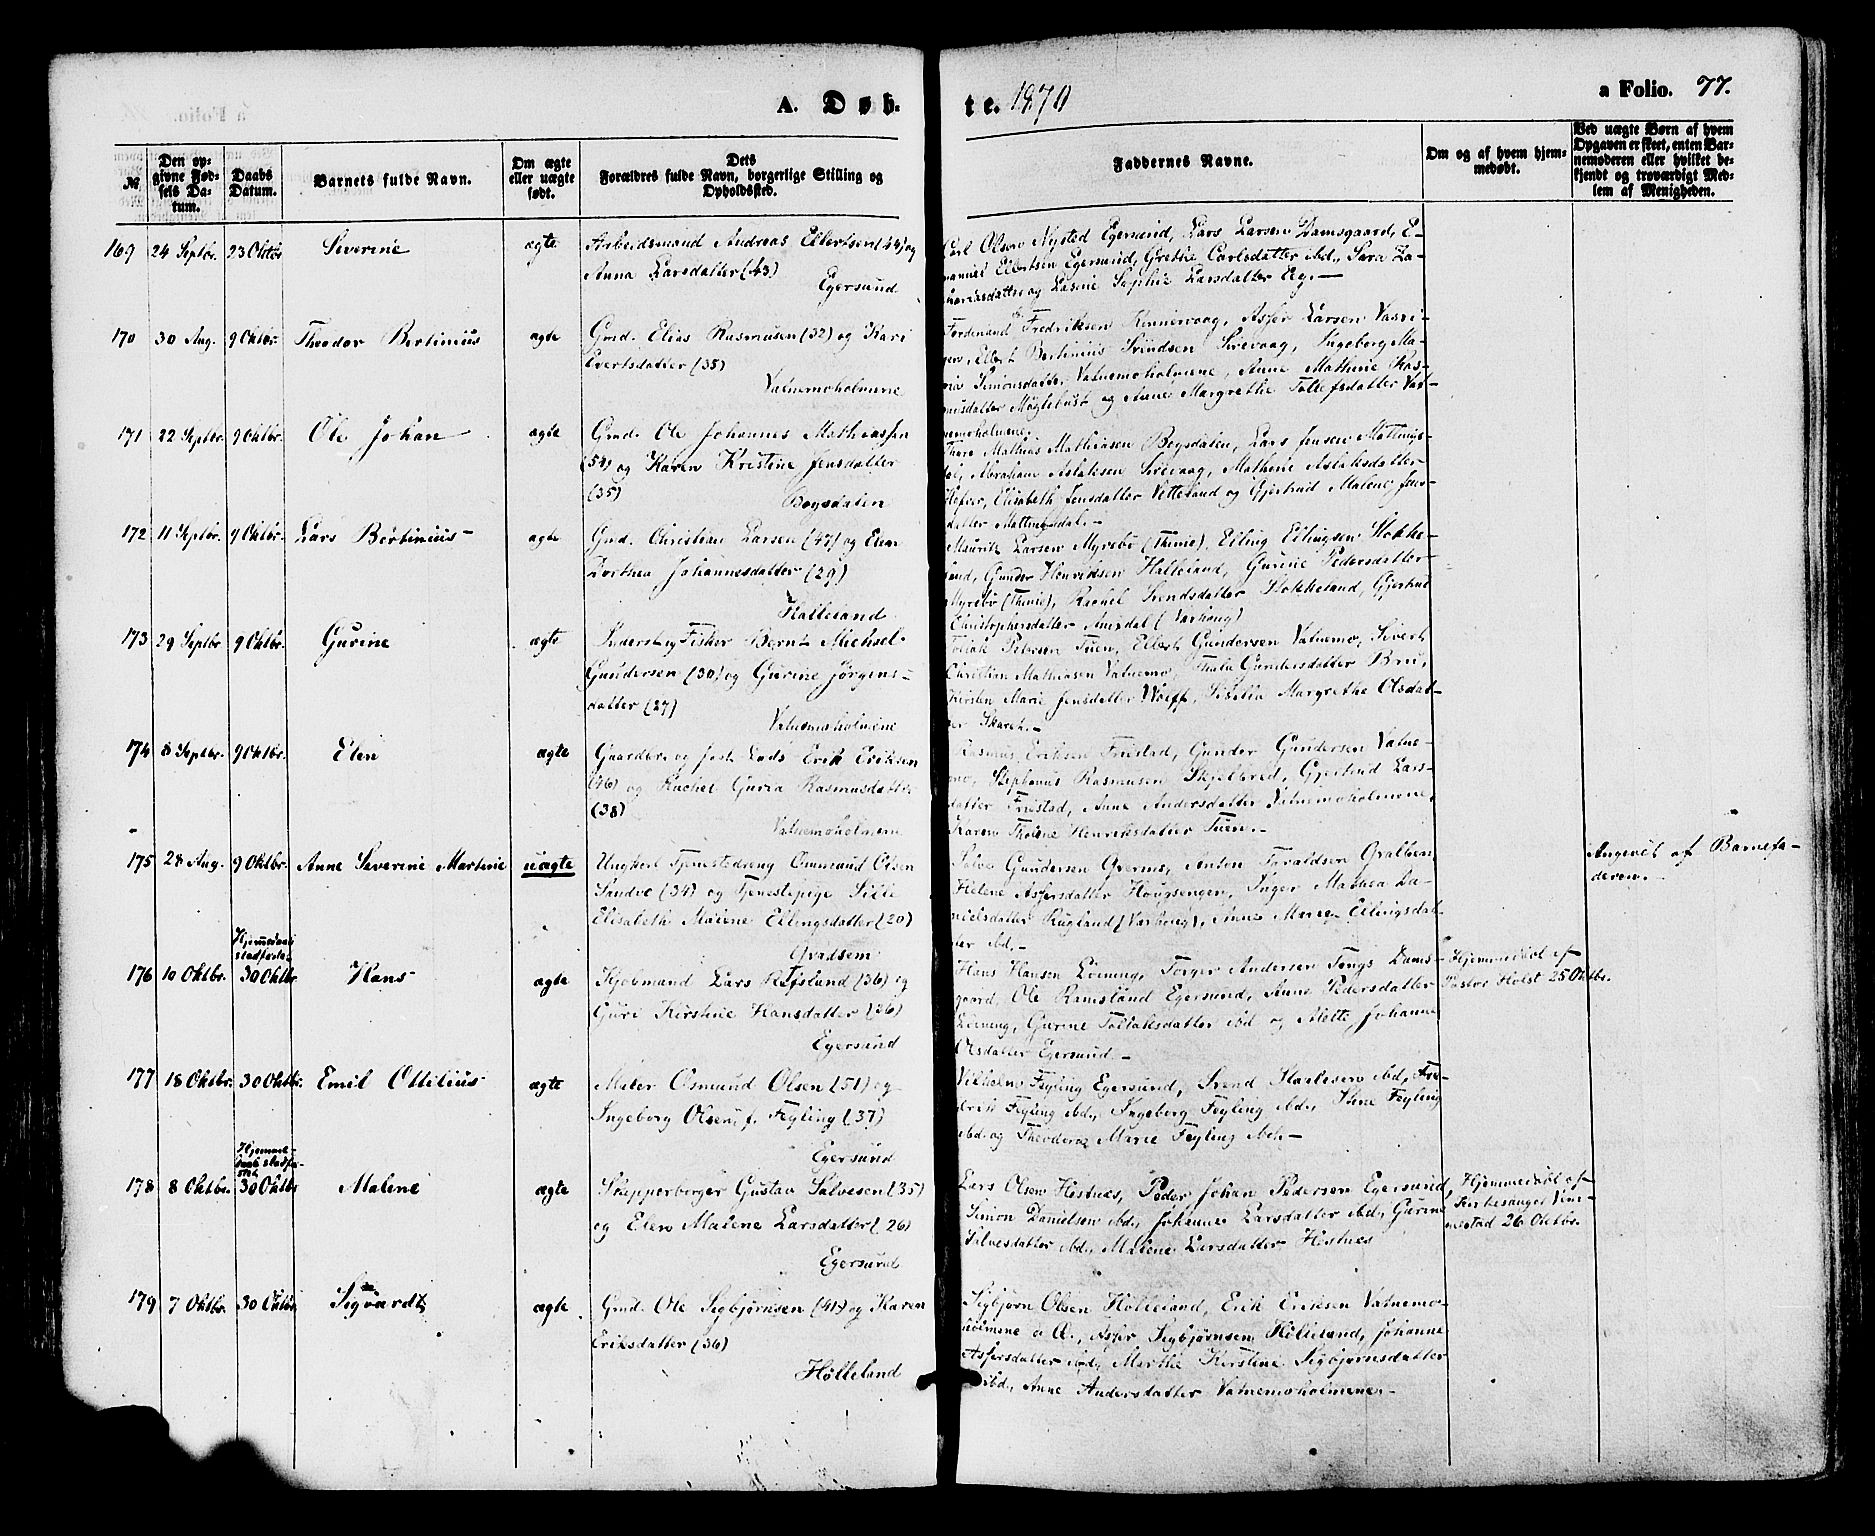 A. Døb-
te. 1870
a Folio. 77.
№
Den op-
givne Fød-
sels Da-
tum.
Daabs
Datum.
Barnets fulde Navn.
Om ægte
eller uægte
født.
Dets
Forældres fulde Navn, borgerlige Stilling og
Opholdssted.
Faddernes Navne.
Om og af hvem hjem-
medøbt.
Ved uægte Børn af hvem
Opgaven er skeet, enten Bar-
nemoderen eller hvilket be-
kjendt og troværdigt Med-
lem af Menigheden.
169 24 Septbr. 23 Oktbr Severine ægte
Arbeidsmand Andreas Ellertsen (44) og
Anna Larsdatter (43)
Egersund
Carl Olsen Nysted Egersund, Lars Larsen Damsgaard, E-
manuel Ellertsen Egersund, Grethe Carlsdatter ibd., Sara Za-
chariasdatter og Lasine Sophie Larsdatter Eeg.—
170 30 Aug. 9 Oktbr. Theodor Bertinius ægte
Gmd. Elias Rasmusen (32) og Kari
Evertsdatter (35)
Vatnemoholmene
Ferdinand Fredriksen Kinnervaag, Asser Larsen
Ellert Bertinius Svindsen Sirevaag, Ingeborg Ma-
ria Simonsdatter Vatnemoholmene, Anne Mathine Ras-
musdatter Møglebust og Anne Margrethe Tollefsdatter Vat-
nemoholmene.
171 22 Septbr. 9 Oktbr. Ole Johan ægte
Gmd. Ole Johannes Mathiassen
(54) og Karen Kristine Jensdatter
(35)
Bøgsdalen
Mathias Mathiasen Bøgsdalen, Lars Jensen Mattings-
dal, Abraham Aslaksen Sirevaag, Mathene Aslaksdatter
Elisabeth Jensdatter Vetteland og Gjertrud Malene Jens-
datter Mattingsdal.—
172 11 Septbr. 9 Oktbr. Lars Bertinius ægte
Gmd. Christian Larsen (47) og Elen
Dorthea Johannesdatter (29)
Halleland
Maurits Larsen Myrebø (Thime), Elling Ellingsen Stokke-
land, Gunder Henriksen Halleland, Gurine Pedersdatter
Myrebø (Thime), Rachel Svendsdatter Stokkeland, Gjertrud
Christophersdatter Aarsdal (Varhoug)
173 29 Septbr 9 Oktbr. Gurine ægte
Inderst og Fisker Bernt Michael
Gundersen (30) og Gurine Jørgens-
datter (27)
Vatnemoholmene
Tollak Petersen Tuen, Ellert Gundersen Vatnemo, Sivert
Christian Mathiasen Vatnemo, Thalia Gundersdatter Bru,
Kirsten Marie Jensdatter Wolff, Siselia Margrethe Olsdat-
ter Skaret.—
174 8 Septbr. 9 Oktbr. Elen ægte
Gaardbr. og fast Lods Erik Eriksen
(46) og Rachel Guria Rasmusdatter
(38)
Vatnemoholmene
Rasmus Eriksen Friestad, Gunder Gundersen Vatne-
mo, Stephanus Rasmusen Skjelbred, Gjertrud Lars-
datter Friestad, Anne Andersdatter Vatnemoholmene,
Karen Tholene Henriksdatter Tuen.—
175 28 Aug. 9 Oktbr. Anne Severine Martine uægte
Ungkarl Tjenestedreng Ommund Olsen
Sandve (34) og Tjenestepige Sille
Elisabeth Malene Ellingsdatter (20)
Gvadsem
Gundersen Anton Tyraldsen
Helene Assersdatter Hougsengen, Inger Mathea Da-
nielsdatter Rugland (Varhoug), Anne Marie Ellingsdat-
ter ibd.—
Angivet af Barnefa-
deren.—
Hjemmedaab
stadfæstet
176 10 Oktbr. 30 Oktbr Hans ægte
Kjøbmand Lars Refsland (36) og
Guri Kirstine Hansdatter (36)
Egersund
Hans Hansen Løining, Torger Andersen Tengs Dams-
gaard, Ole Ramsland Egersund, Anne Pedersdatter
Løining, Gurine Tollaksdatter ibd og Mette Johanne
Olsdatter Egersund.—
Hjemmedøbt af
Pastor Holst 25 Oktbr.
177 18 Oktbr. 30 Oktbr. Emil Ottilius ægte
Maler Osmund Olsen (51) og
Ingeborg Olsen, f. Feyling (37)
Egersund
Vilhelm Feyling Egersund, Svend Haalesen ibd, Fre-
drik Feyling ibd., Ingeborg Feyling ibd., Stine Feyling
ibd. og Theodora Marie Feyling ibd.—
Hjemme-
daab stadfæ-
stet
178 8 Oktbr. 30 Oktbr Malene ægte
Skipperborger Gustav Salvesen (35)
og Elen Malene Larsdatter (26)
Egersund
Lars Olsen Hestnes, Peder Johan Pedersen Egersund,
Simon Danielsen ibd., Johanne Larsdatter ibd., Gurine
Salvesdatter ibd., Malene Larsdatter Hestnes
Hjemmedøbt af
Kirkesanger Vin-
nestad 26 Oktbr.
179 7 Oktbr. 30 Oktbr Sigvardt ægte
Gmd. Ole Sigbjørnsen (41) og Karen
Eriksdatter (36)
Hølleland
Sigbjørn Olsen Hølleland, Erik Eriksen Vatnemo-
holmene d. Æ., Asser Sigbjørnsen Hølleland, Johanne
Assersdatter ibd, Marthe Kirstine Sigbjørnsdatter
ibd., Anne Andersdatter Vatnemoholmene.—